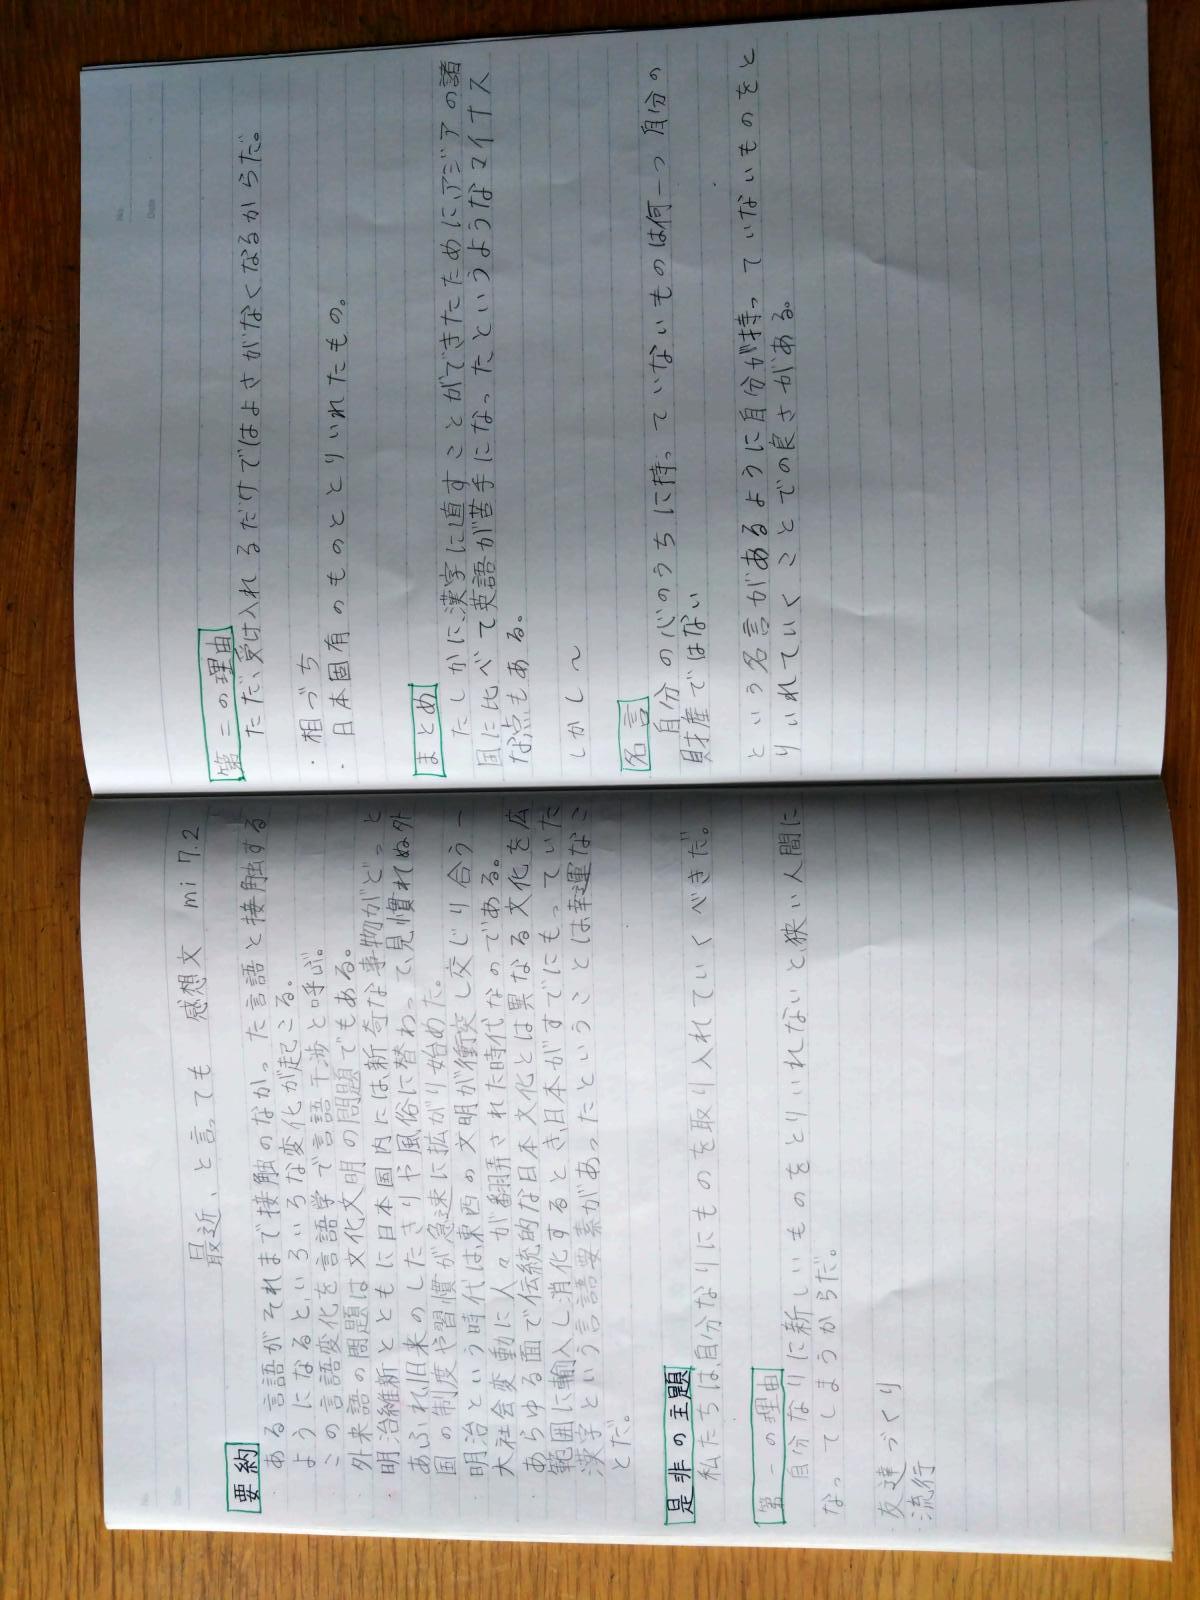 No.
Date
最近、と言っても 感想文 mi 7.2
要約
・ある言語がそれまで接触のなかった言語と接触する
ようになるといろいろな変化が起こる。
・この言語変化を言語学で言語干渉と呼ぶ。
・外来語の問題は文化文明の問題でもある。
・明治維新とともに日本国内には新奇な事物がどっと
あふれ、旧来のしきたりや風俗に替わって、見慣れぬ外
国の制度や習慣が急速に拡がり始めた。
・明治という時代は、東西の文明が衝突し交じり合う一
大社会変動に人々が翻弄された時代なのである。
・あらゆる面で伝統的な日本文化とは異なる文化を広
範囲に輸入し消化するとき、日本がすでにもっていた
漢字という言語要素があったということは幸運なこ
とだ。
是非の主題
私たちは、自分なりにものを取り入れていくべきだ。
第一の理由
自分なりに新しいものをとりいれないと、狭い人間に
なってしまうからだ。
・友達づくり
・流行
No.
Date
第二の理由
ただ、受け入れるだけではよさがなくなるからだ。
・相づち
・日本固有のものととりいれたもの。
まとめ
たしかに、漢字に直すことができたために、アジアの諸
国に比べて英語が苦手になったというようなマイナス
な点もある。
しかし〜
名言
自分の心のうちに持っていないものは何一つ自分の
財産ではない
という名言があるように自分が持っていないものをと
りいれていくことでの良さがある。